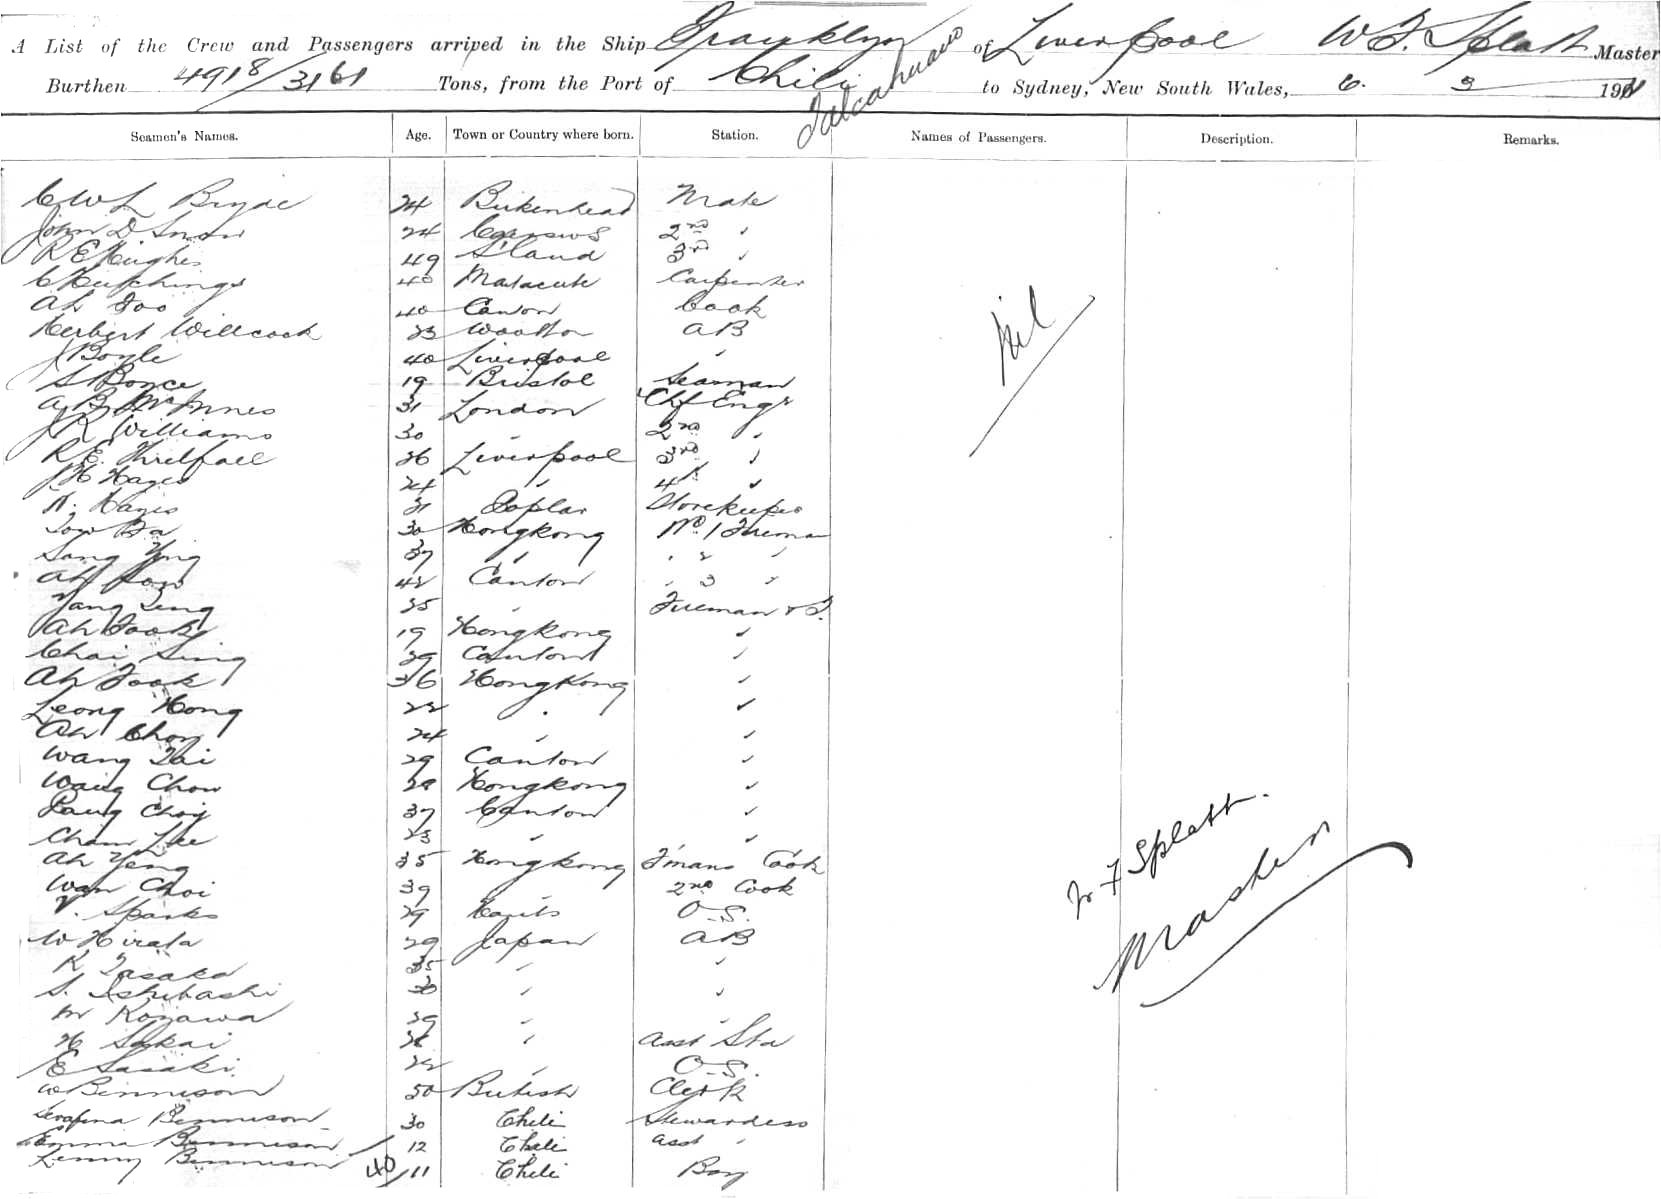 A List of the Crew and Passengers arrived in the Ship Franklyn of Liverpool W F. Splatt Master
Burthen 4918/3161 Tons, from the Port of Chili Talcahuano to Sydney, New South Wales, 6. 3 191
Seamen's Names. Age. Town or Country where born. Station. Names of Passengers. Description. Remarks.
C W L 24 Birkenhead Mate
John D Snow 24 2nd "
R E Hughes 49 3rd "
C Hutchings 40 Carpenter
Ah Foo 40 Canton Cook
Herbert Willcock 23 AB
J Boyle 40 Liverpool "
S Boyce 19 Bristol Seaman
A B McInnes 31 London Chf Engr
J R Williams 30 " 2nd "
R E. Threlfall 26 Liverpool 3rd "
J H Hayes 24 " 4th "
31 Poplar Storekeeper
30 Hongkong No. 1 Fireman
Sang Ying 37 " " 2 "
Ah 42 Canton " 3 "
25 " Fireman & T.
Ah Fook 19 Hongkong "
Chai Sing 29 Canton "
Ah Fook 36 Hongkong "
Leong Hong 22 " "
Ah Chong 24 " "
Wang Tai 29 Canton "
Wang Chow 29 Hongkong "
Choy 37 Canton "
Cham Lee 23 " "
Ah Yeng 35 Hongkong F'mans Cook
Wan Choi 39 2nd Cook
V. Sparks 29 O.S.
W Hirata 29 Japan AB
K Tasaka 35 " "
S. Ishibashi 30 " "
M Kogawa 29 " "
H Sakai " Asst Std
E Sasaki 22 " O.S.
W Bennison 50 British Clerk
Serafina Bennison 30 Chili Stewardess
Emma Bennison 12 Chili Asst "
Lenny Bennison 40/11 Chili Boy
Nil
W F Splatt.
Master